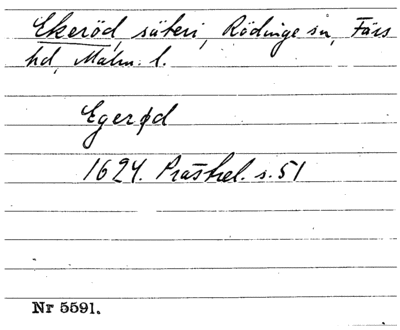 Ekeröd, säteri, Rödinge sn, Färs
hd, Malm. l.
Egerød
1624. Prästrel. s. 51
Nr 5591.